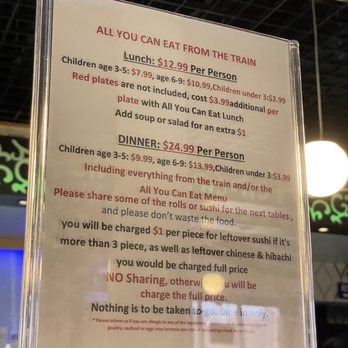 ALL YOU CAN EAT FROM THE TRAIN
Lunch: $12.99 Per Person
Children age 3-5: $7.99, age 6-9: $10.99,Children under 3:$2.99
Red plates are not included, cost $3.99additional per
plate with All You Can Eat Lunch
Add soup or salad for an extra $1
DINNER: $24.99 Per Person
Children age 3-5: $9.99, age 6-9: $13.99,Children under 3:$3.99
Including everything from the train and/or the
All You Can Eat Menu
Please share some of the rolls or sushi for the next tables ,
and please don't waste the food,
you will be charged $1 per piece for leftover sushi if it's
more than 3 piece, as well as leftover chinese & hibachi
you would be charged full price
NO Sharing, otherwise you will be
charge the full price.
Nothing is to be taken to-go. Dine in only.
* Please inform us if you are allergic to any of the
poultry, seafood or eggs may increase your risk of